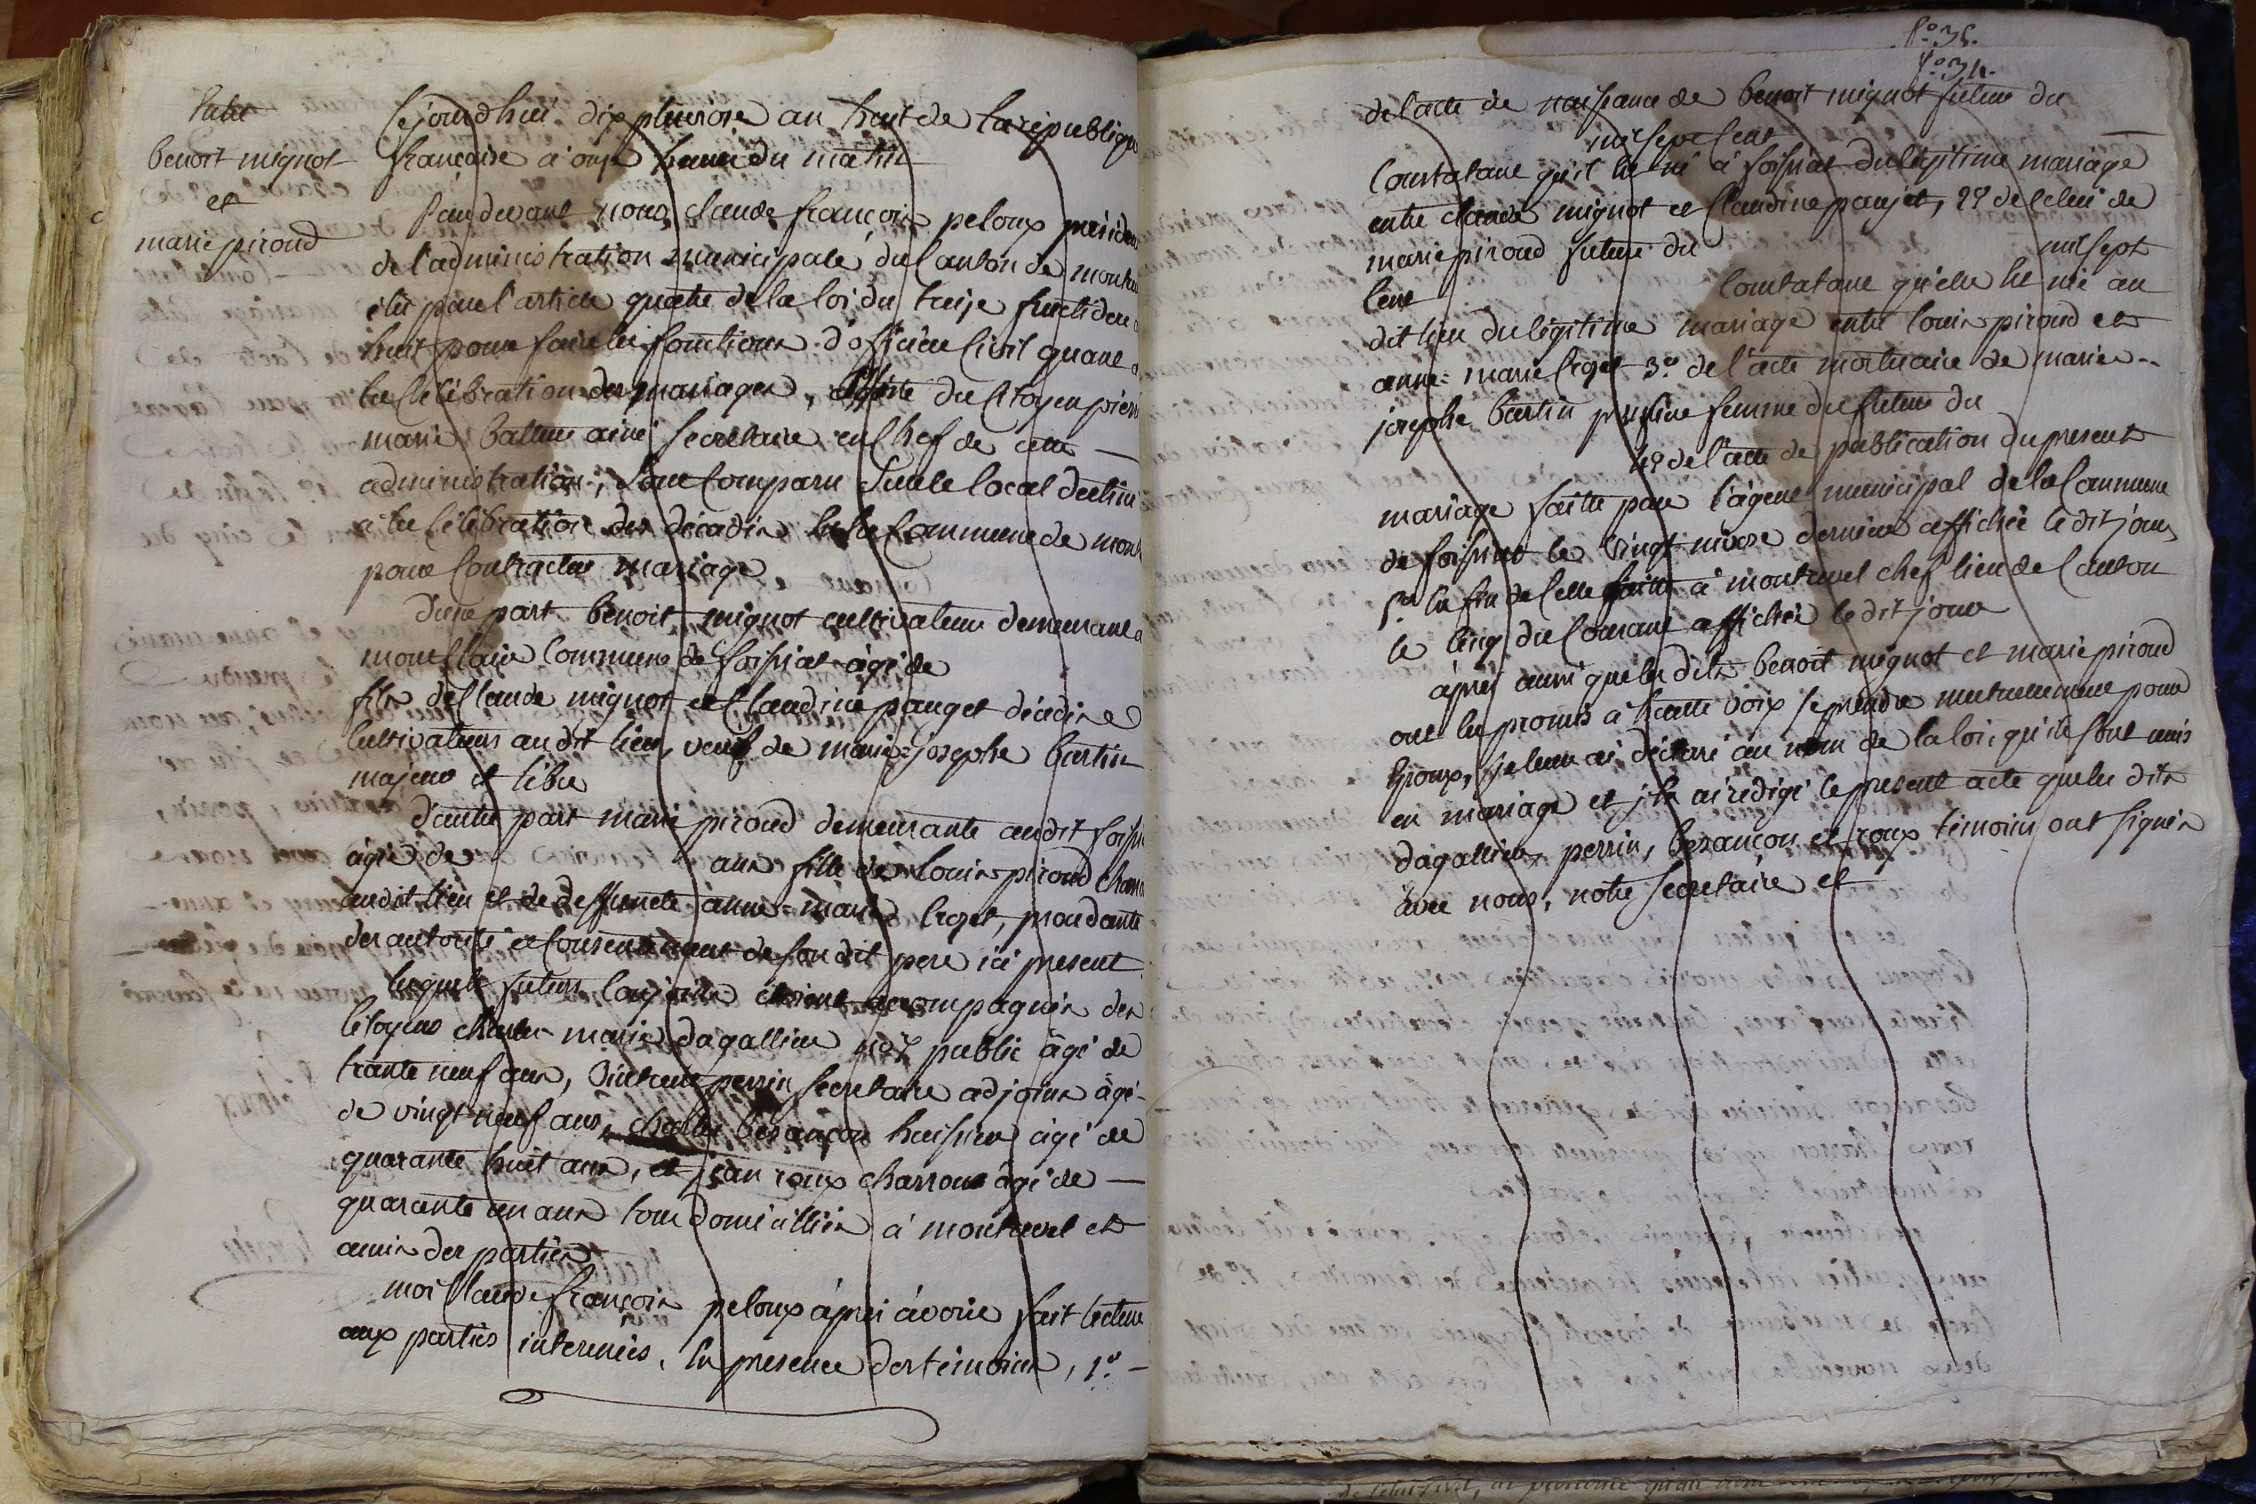 entre
benoit mignot
et
marie piroud
Cejourdhui dix pluviose an huit de la republique
francaise à onze heures du matin
Pardevant nous claude françois peloux president
de l'administration municipale du canton de montrevel
élu par l'article quatre de la loi du treize fructidor
huit pour faire les fonctions d'officier civil quant a
la célébration des mariages, assisté du citoyen pierre
marie ainé secretaire en chef de cette
administration, sont comparu sur le local destiné
a la célébration des décadis en la commune de mont
pour contracter mariage
d'une part benoit mignot cultivateur demeurant a
montclair commune de foissiat agé de
fils de claude mignot et claudine pauget décédés
cultivateurs au dit lieu, veuf de marie=josephe bertin
majeur et libre
d'autre part marie piroud demeurante audit foissiat
agée de ans fille de louis piroud
audit lieu et de deffuncte anne=marie croyet, procedante
des autorité et consentement de son dit pere ici present
lesquels futurs conjoints étoient accompagnés des
citoyens charles marie dagallier not public agé de
trante neuf ans, vintrent perrin secretaire adjoint agé
de vingt neuf ans, charles besançon huissier agé de
quarante huit ans, et jean roux charron agé de
quarante un ans tous domicilliés à montrevel et
amis des parties
moi claude françois peloux après avoir fait lecture
aux parties interenies, en presence des témoins, 1°
f° 35.
f° 34.
de l'acte de naissance de benoit mignot futur du
mil sept cent
constatant qu'il est né à foissiat du légitime mariage
entre claude mignot et claudine paujet, 2° de celui de
marie piroud future du mil sept
cent constatant qu'elle est née au
dit lieu du légitime mariage entre louis piroud et
anne=marie croyet 3° de l'acte mortuaire de marie=
josephe bertin premiere femme du futur du
4° de l'acte de publication du present
mariage faitte par l'agent municipal de la commune
de foissiat le vingt nivose dernier affichée le dit jour
5° en fin de celle faitte à montrevel chef lieu de canton
le cinq du courant affichée le dit jour
après aussi que les dits benoit mignot et marie piroud
ont eu promis à haute voix se prendre mutuellement pour
époux, je leur ai déclaré au nom de la loi, qu'ils sont unis
en mariage et j'en ai rédigé le present acte que les dits
dagallier, perrin, besançon et roux témoins ont signés
avec nous, notre secretaire et